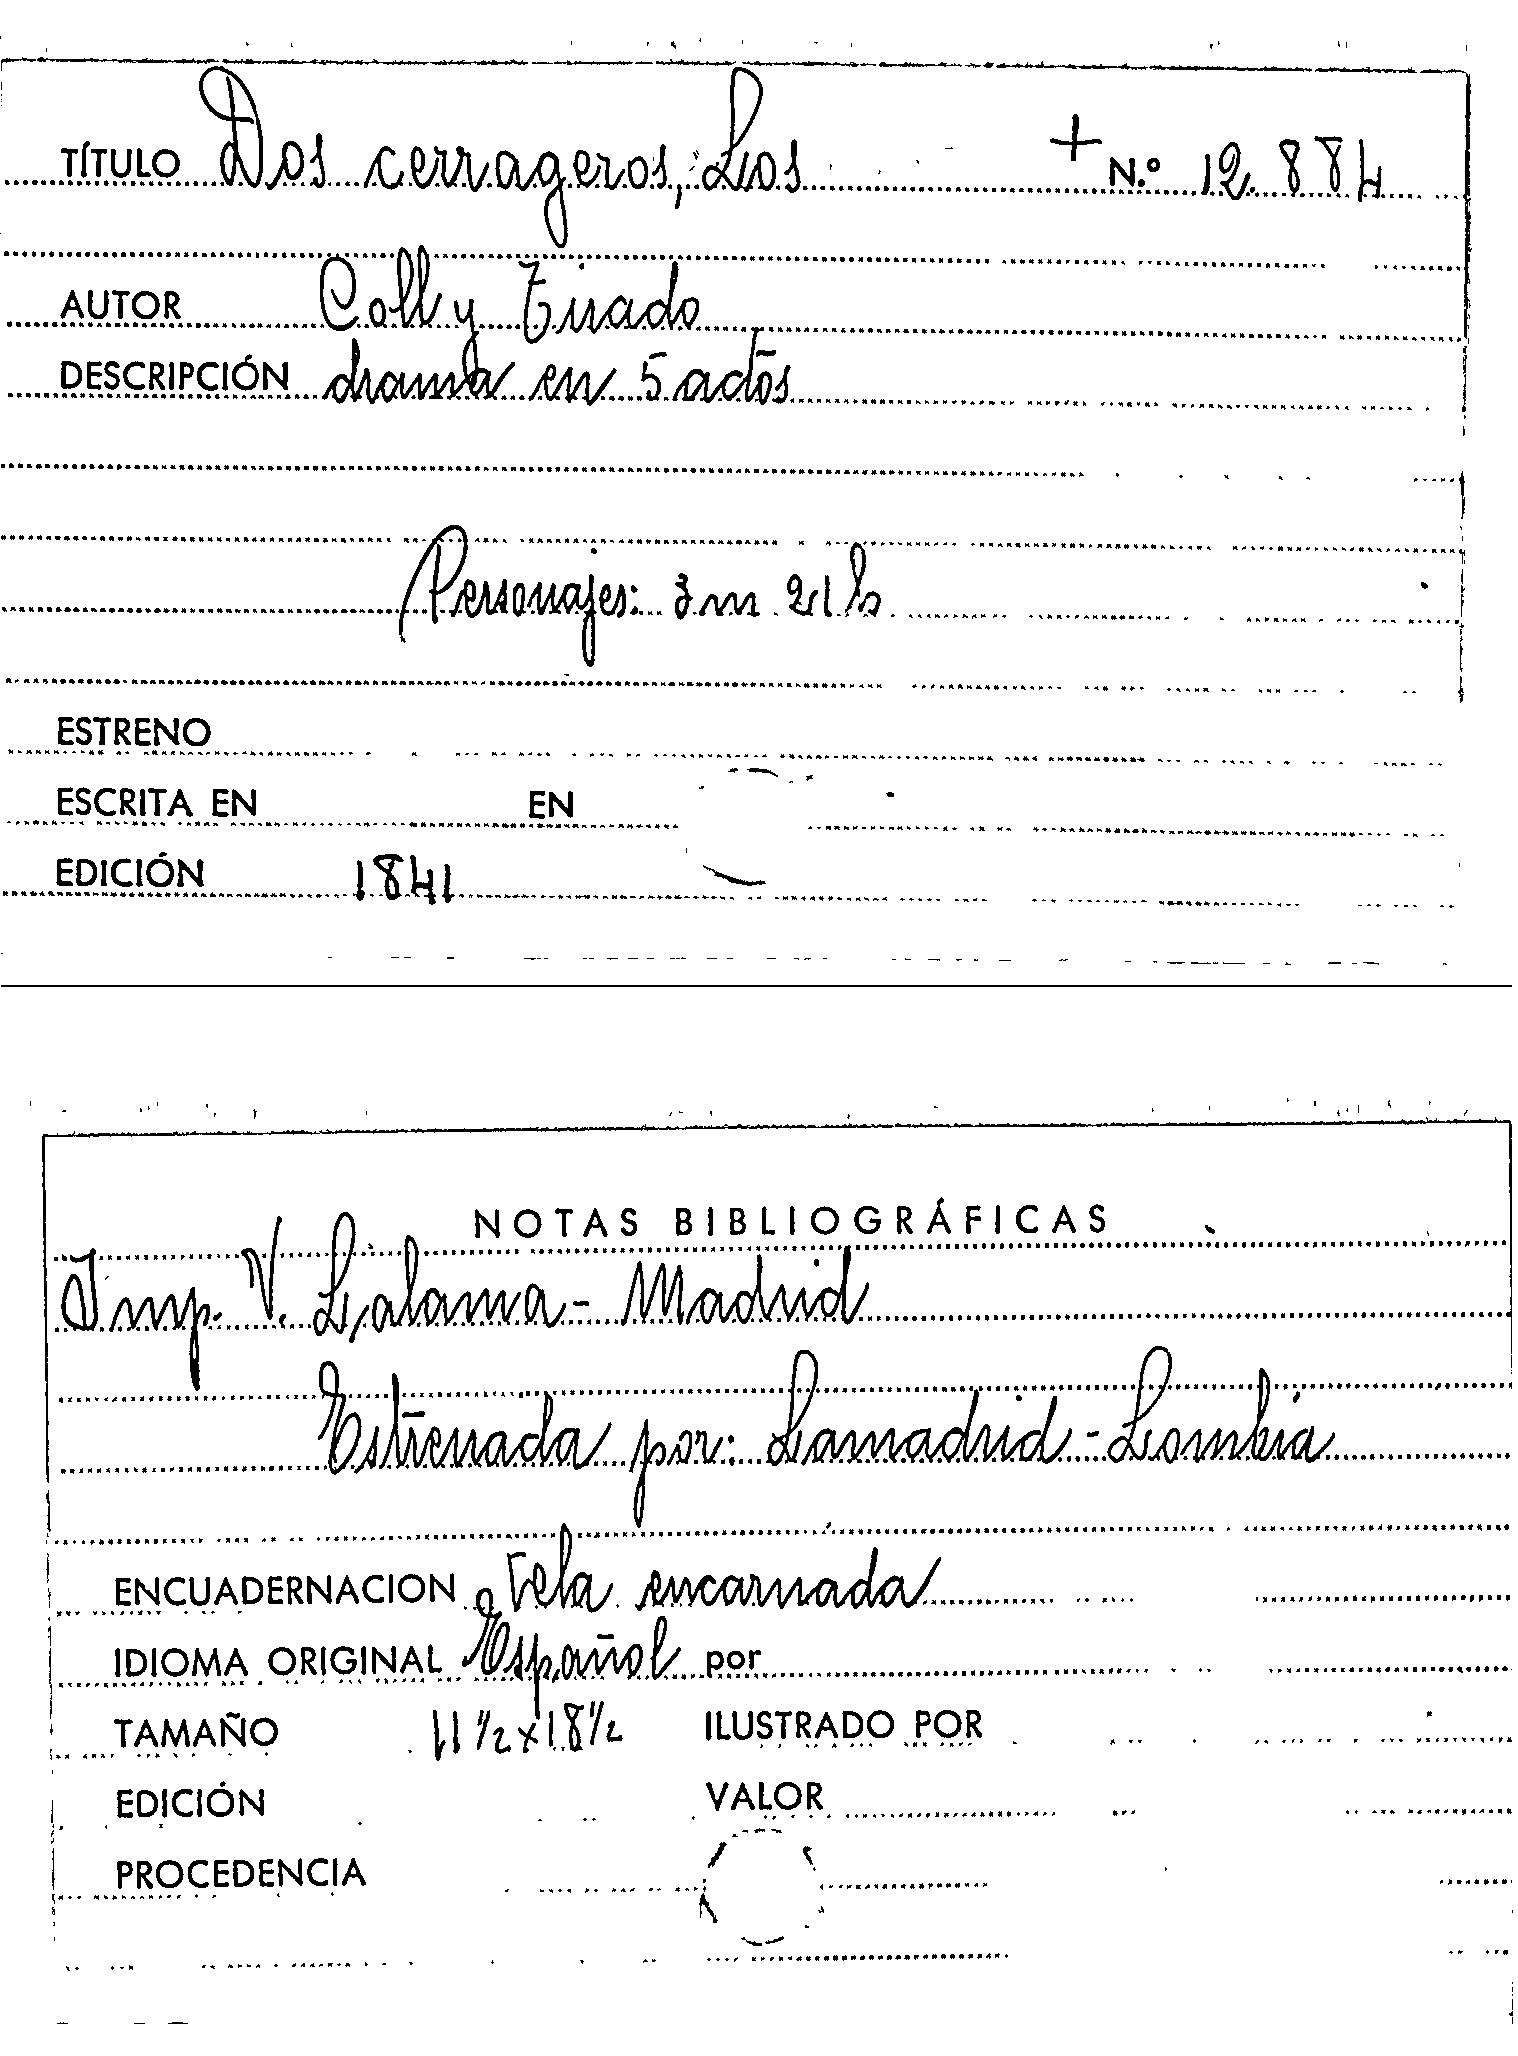 TÍTULO Dos cerrageros, Los + N.º 12.884
AUTOR Coll y Tirado
DESCRIPCIÓN drama en 5 actos
Personajes: 3 m 21 h
ESTRENO
ESCRITA EN EN
EDICIÓN 1841
NOTAS BIBLIOGRÁFICAS
Imp. V. Lalama - Madrid
Estrenada por: Lamadrid - Lombia
ENCUADERNACION Tela encarnada
IDIOMA ORIGINAL Español por
TAMAÑO 11 ½ x 18 ½ ILUSTRADO POR
EDICIÓN VALOR
PROCEDENCIA